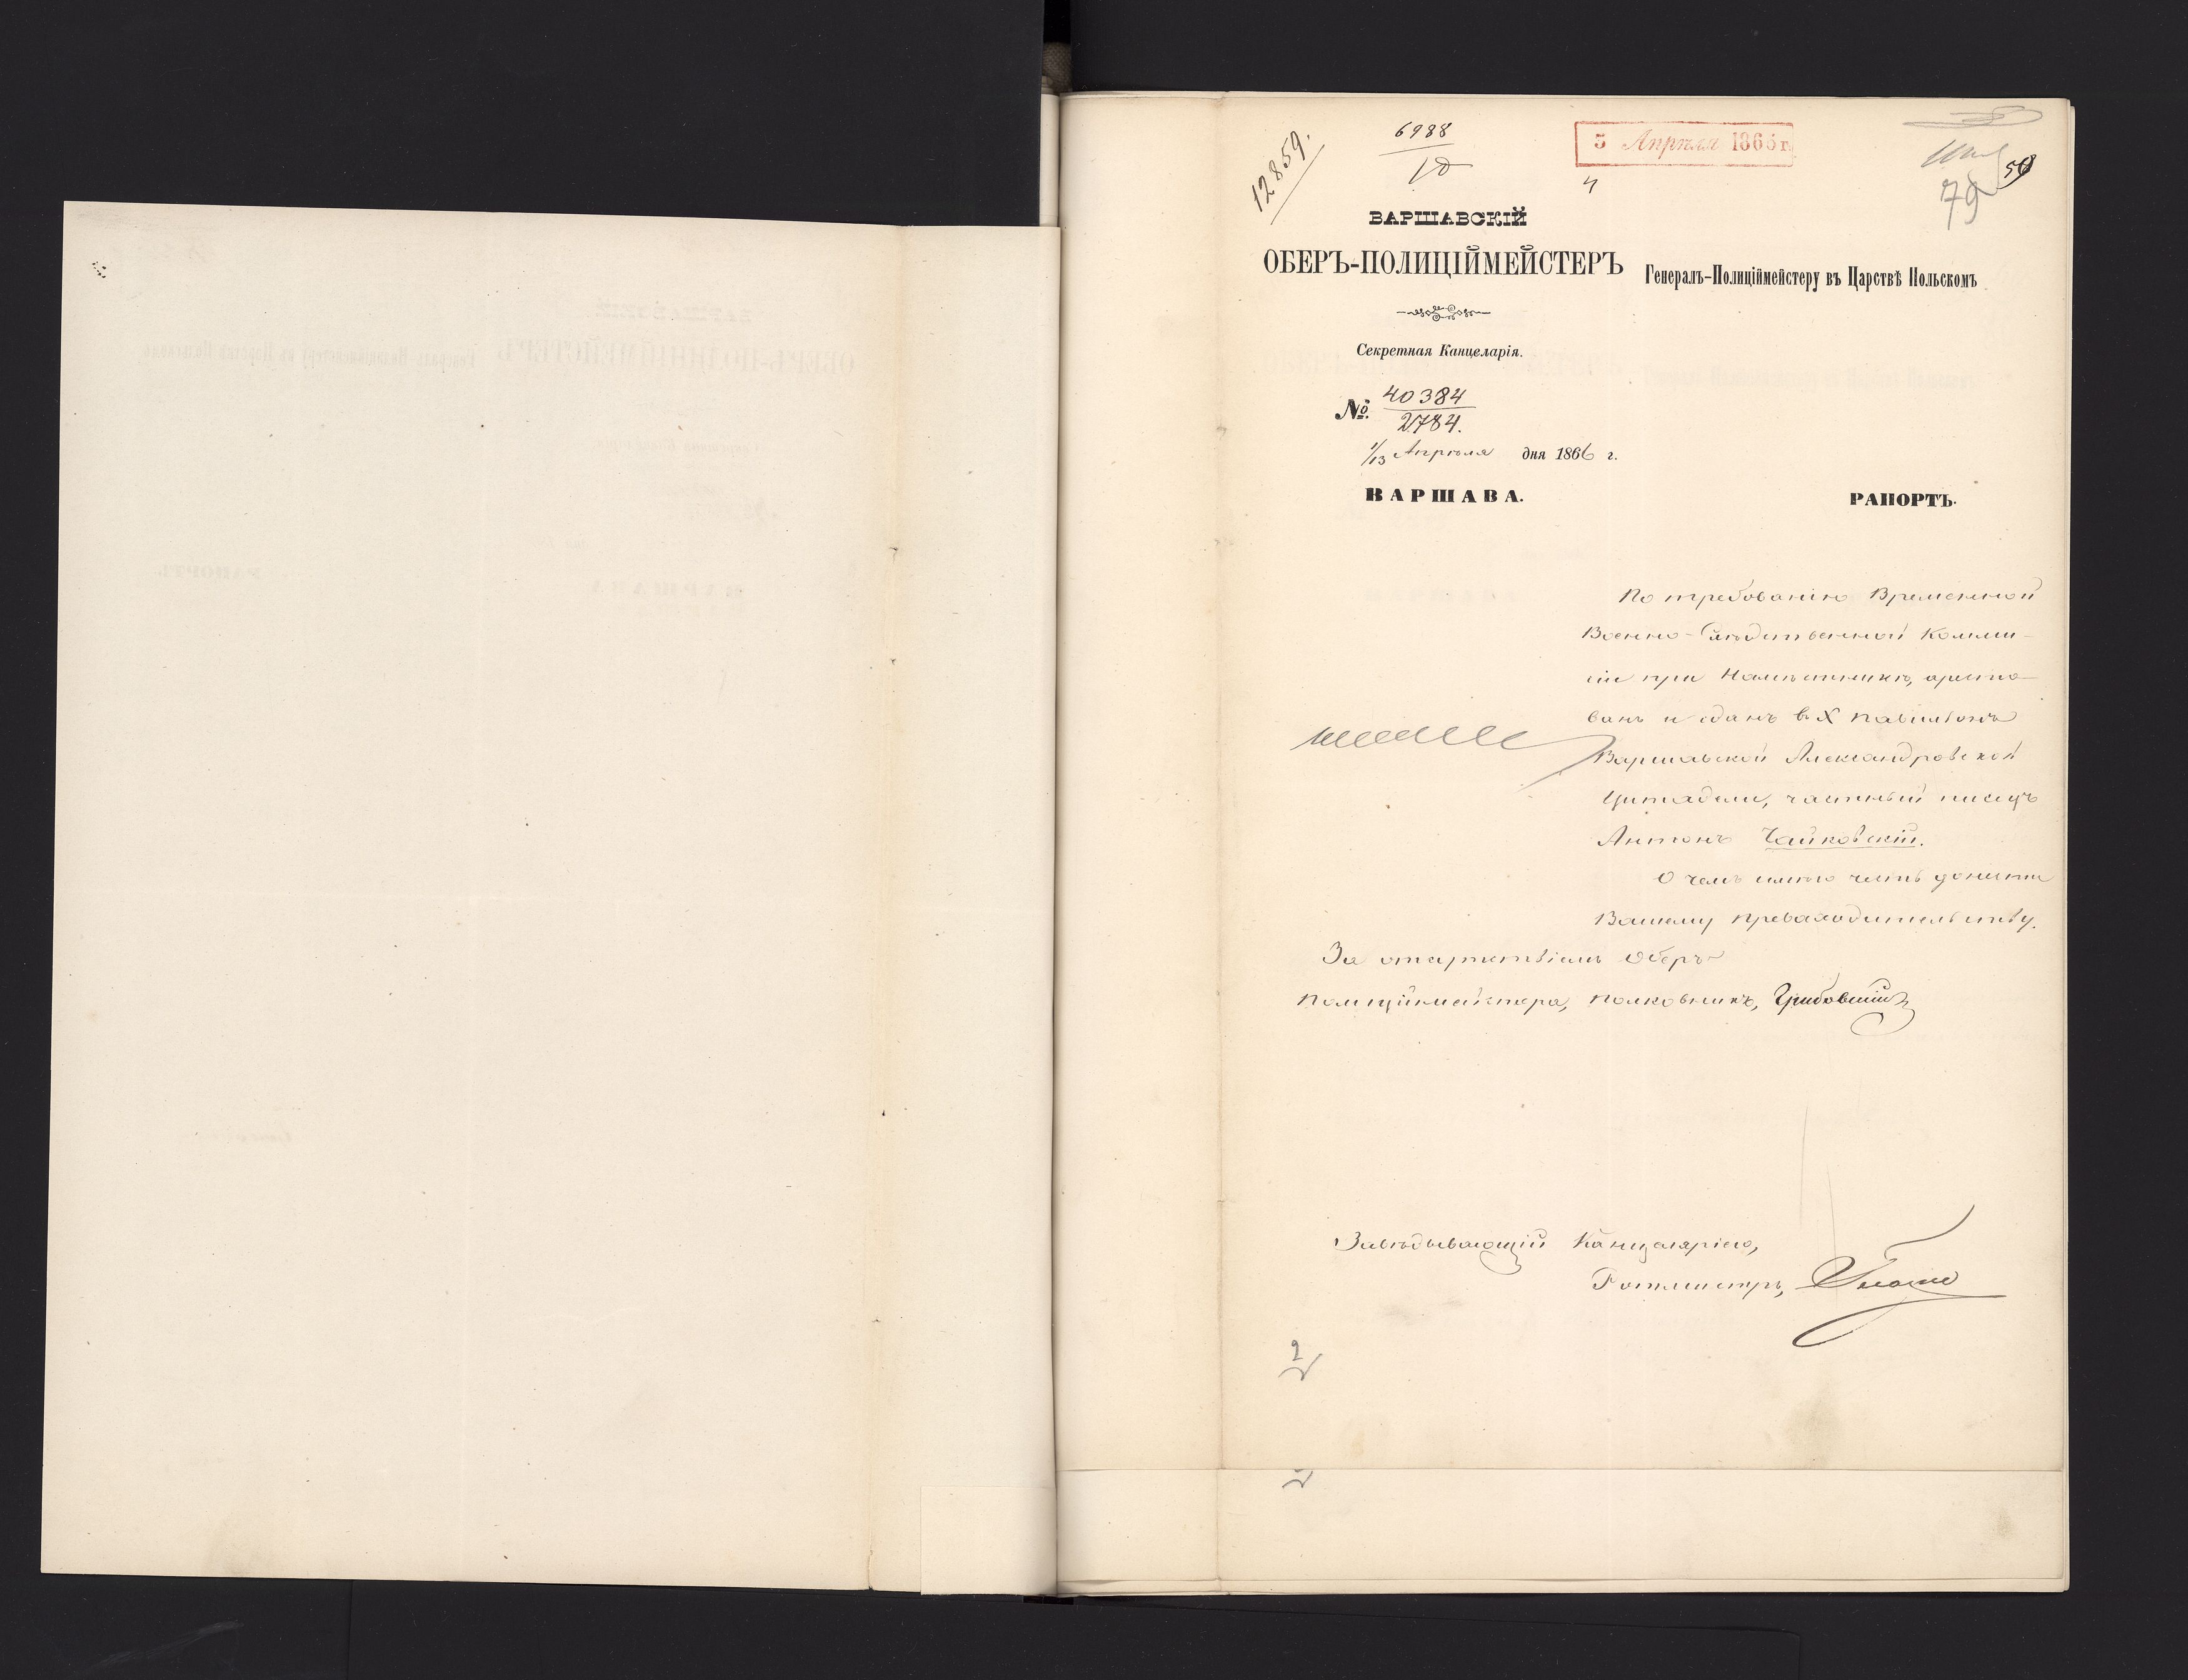 12859.
6988
10
3 Апрѣля 1866 г.
4
79
59
ВАРШАВСКІЙ
ОБЕРЪ-ПОЛИЦІЙМЕЙСТЕРЪ
Генералъ-Полиціймейстеру въ Царствѣ Польскомъ
Секретная Канцеларія.
№ 40384
2784.
1/13 Апрѣля дня 1866 г.
ВАРШАВА.
РАПОРТЪ.
По требованію Временной
Военно-Слѣдственной Комми-
сіи при Намѣстникѣ, аресто-
ванъ и сданъ въ X павильонъ
Варшавской Александровской
Цитадели, частный писецъ
Антонъ Чайковскій.
О чемъ имѣю честь донести
Вашему Превосходительству.
За отсутствіемъ Оберъ-
Полиціймейстера, Полковникъ,
Завѣдывающій Канцеляріею,
Ротмистръ,
2